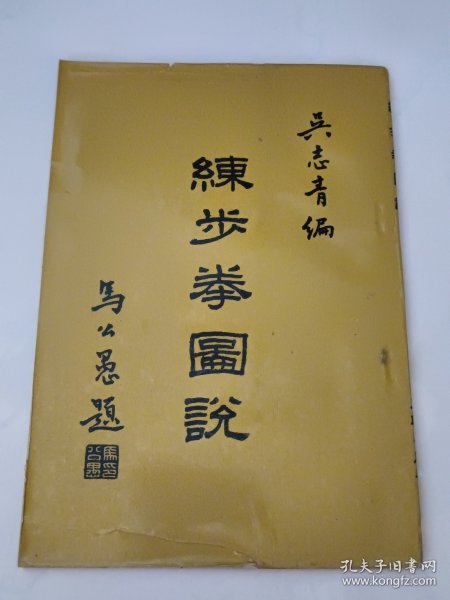 吳志青編
練步拳圖說
馬公愚題
馬公愚印
孔夫子旧书网
www.kongfz.com